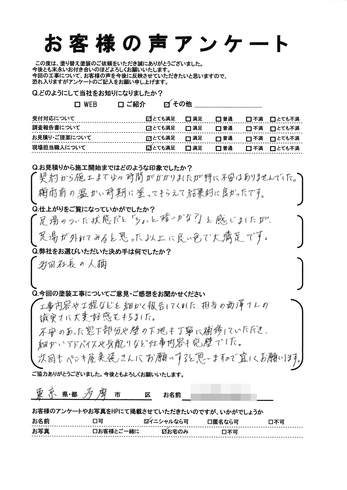 お客様の声アンケート
この度は、塗り替え塗装のご依頼をいただき誠にありがとうございました。
今後とも末永いお付き合いのほどよろしくお願いいたします。
今回の工事について、お客様の声を今後に反映させていただきたいと思いますので、
恐れ入りますがアンケートのご記入をお願い申し上げます。
Q.どのようにして当社をお知りになりましたか?
□ WEB □ ご紹介 ☑ その他
受付対応について ☑とても満足 □満足 □普通 □不満 □とても不満
調査報告書について ☑とても満足 □満足 □普通 □不満 □とても不満
お見積り・ご提案について ☑とても満足 □満足 □普通 □不満 □とても不満
現場担当職人について ☑とても満足 □満足 □普通 □不満 □とても不満
Q.お見積りから施工開始まではどのような印象でしたか?
契約から施工までの時間がかかりましたが特に不安はありませんでした。
梅雨前の温かい時期に塗ってもらえて結果的に良かったです。
Q.仕上がりをご覧になっていかがでしたか?
足場のついた状態だと「ちょっと暗いかな?」と感じましたが、
足場が外れてみると思った以上に良い色で大満足です。
Q.弊社をお選びいただいた決め手は何でしたか?
社長の人柄
Q.今回の塗装工事についてご意見・ご感想をお聞かせください
工事内容や工程などを細かく報告してくれた、担当の西澤さんの
誠実さに大変好感をもちました。
不安のあった窓下部分や壁の下地も丁寧に補修していただき、
細かいアドバイスや気配りなど仕事内容も完璧でした。
次回もペンキ屋美装さんにお願いすると思いますので宜しくお願いします。
ご協力ありがとうございました。今後ともよろしくお願いいたします。
東京 県・都 多摩 市 区 お名前
お客様のアンケートやお写真をHPにて掲載させていただきたいのですが、いかがでしょうか
お名前 □可 ☑イニシャルなら可 □匿名なら可 □不可
お写真 □お客様とご一緒に ☑お宅のみ □不可